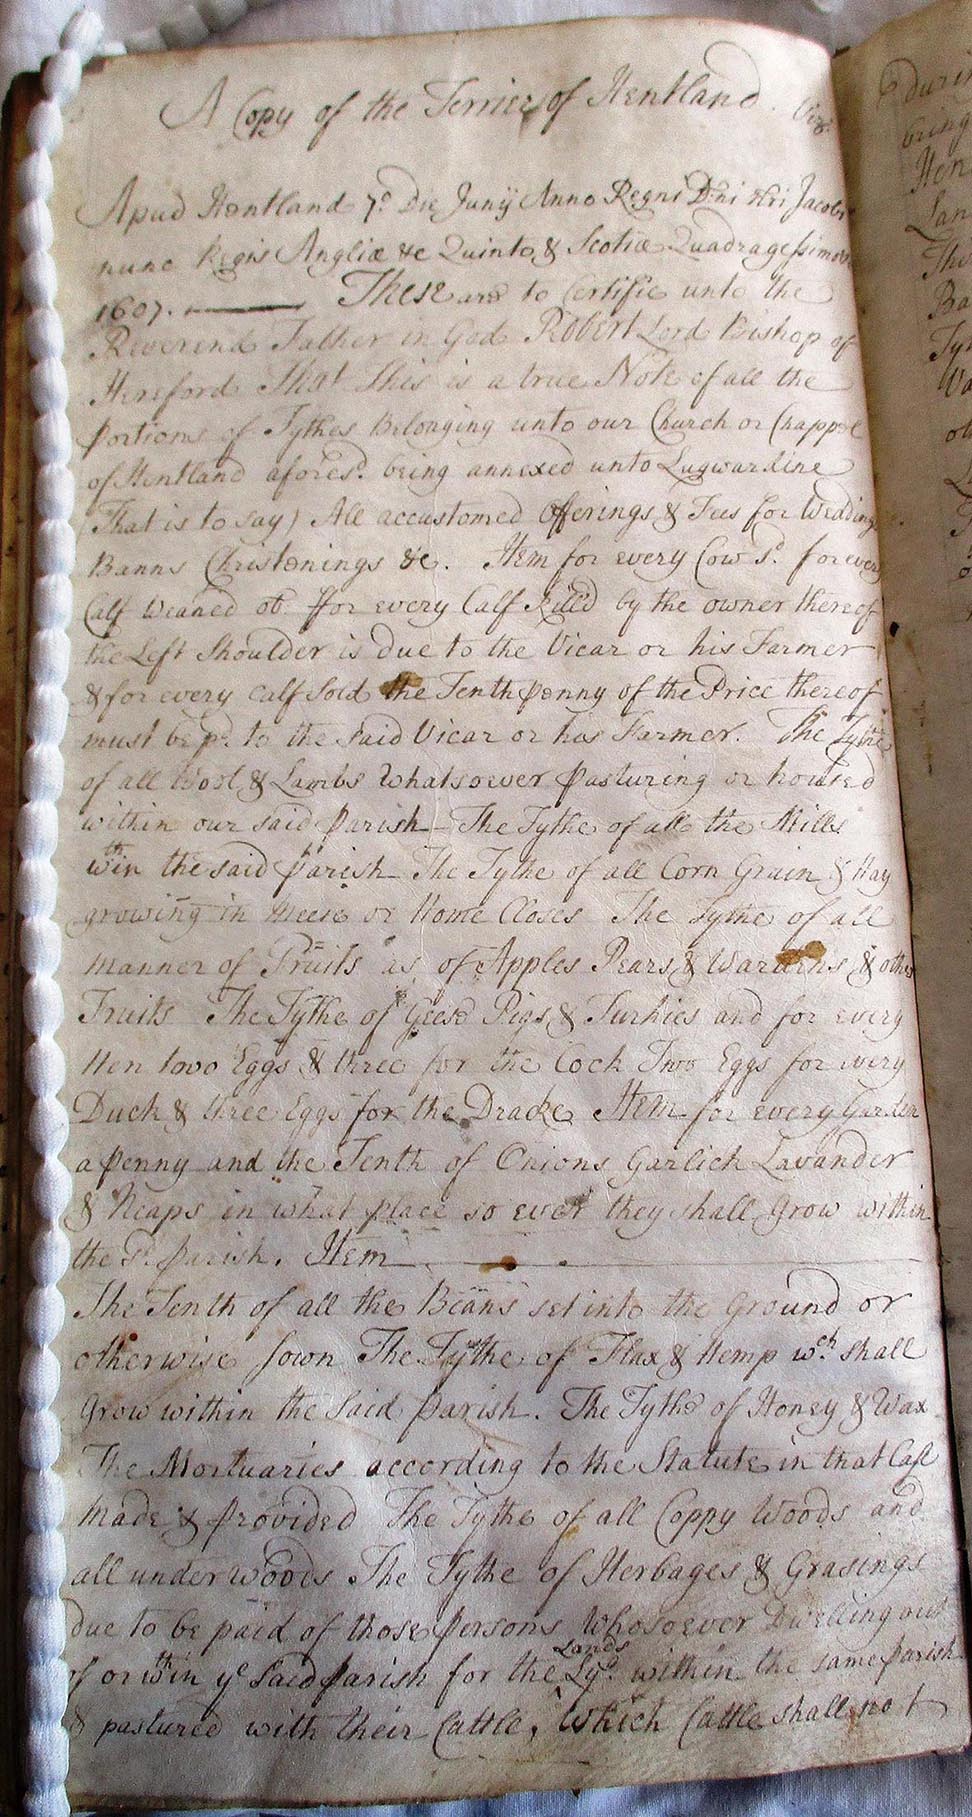 A Copy of the Terrier of Hentland. Viz.
Apud Hentland 7o. Die Junij Anno Regni Dni Nri Jacobi
nunc Regis Angliæ &c Quinto & Scotiæ Quadragessimo
1607. These are to Certifie unto the
Reverend Father in God Robert Lord Bishop of
Hereford That This is a true Note of all the
portions of Tythes Belonging unto our Church or Chappel
of Hentland afores'd. being annexed unto Lugwardine
(That is to say) All accustomed Offerings & Fees for Weddings
Banns Christenings &c. Item for every Cow 1d. for every
Calf Weaned ob. ffor every Calf Kill'd by the owner thereof
the Left Shoulder is due to the Vicar or his Farmer
& for every Calf Sold the Tenth penny of the Price thereof
must be pd. to the said Vicar or his Farmer. The Tythe
of all Wool & Lambs Whatsoever pasturing or housed
within our said Parish The Tythe of all the Mills
wthin the said Parish The Tythe of all Corn Grain & Hay
growing in Meese or Home Closes The Tythe of all
manner of Fruits as of Apples Pears & Wardens & other
Fruits The Tythe of Geese Pigs & Turkies and for every
Hen two Eggs & three for the Cock Two Eggs for every
Duck & three Eggs for the Drake Item for every Garden
a penny and the Tenth of Onions Garlick Lavander
& Neaps in what place so ever they shall Grow within
the sd. Parish. Item
The Tenth of all the Beans set into the Ground or
otherwise sown The Tythe of Flax & Hemp wch shall
Grow within the Said Parish. The Tythe of Honey & Wax
The Mortuaries according to the Statute in that Case
Made & provided The Tythe of all Coppy Woods and
all under woods The Tythe of Herbages & Grasings
due to be paid of those persons Whosoever Dwelling out
of or wthin ye Said Parish for the Lands within the same Parish
& pastured with their Cattle, Which Cattle shall not